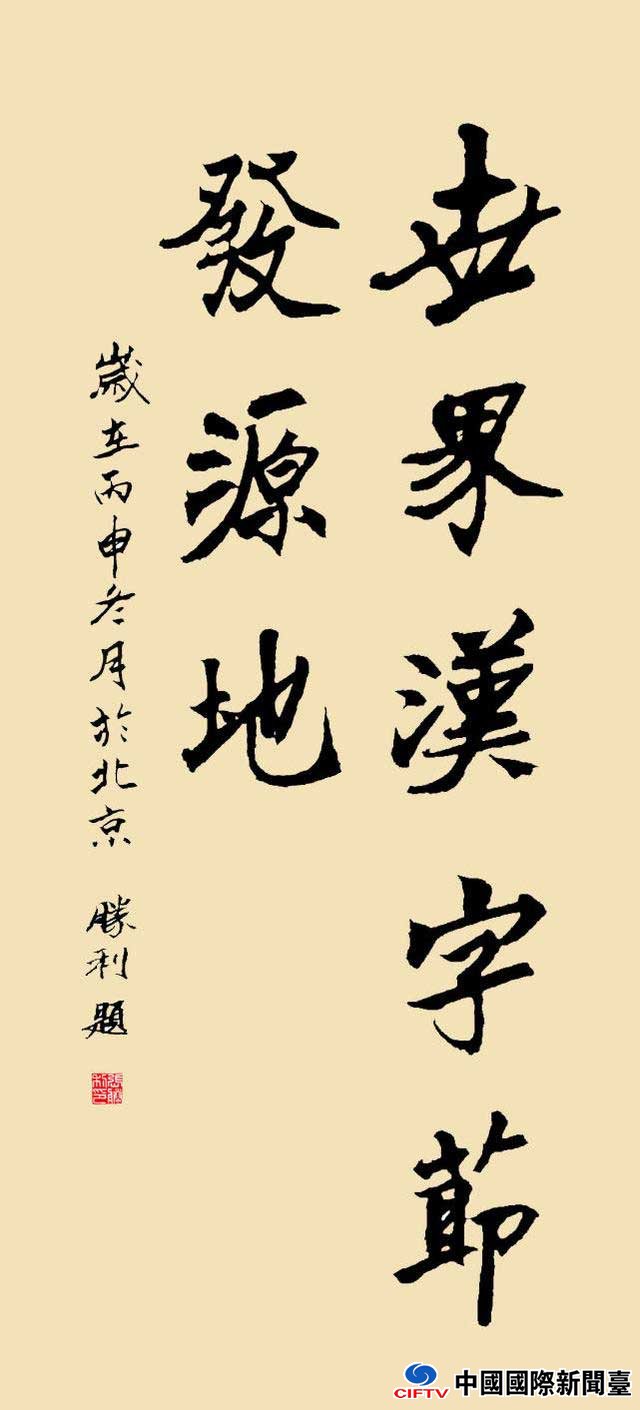 世界漢字節
發源地
歲在丙申冬月於北京 勝利題
CIFTV 中國國際新聞臺